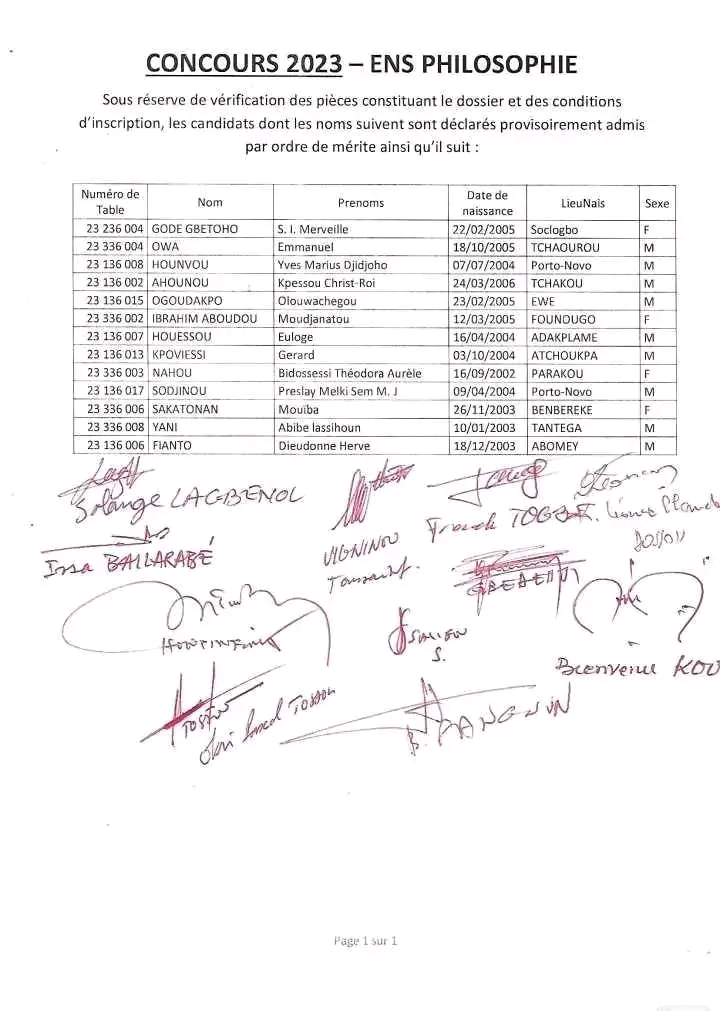 CONCOURS 2023 – ENS PHILOSOPHIE
Sous réserve de vérification des pièces constituant le dossier et des conditions
d'inscription, les candidats dont les noms suivent sont déclarés provisoirement admis
par ordre de mérite ainsi qu'il suit :
Numéro de Table Nom Prenoms Date de naissance LieuNais Sexe
23 236 004 GODE GBETOHO S. I. Merveille 22/02/2005 Soclogbo F
23 336 004 OWA Emmanuel 18/10/2005 TCHAOUROU M
23 136 008 HOUNVOU Yves Marius Djidjoho 07/07/2004 Porto-Novo M
23 136 002 AHOUNOU Kpessou Christ-Roi 24/03/2006 TCHAKOU M
23 136 015 OGOUDAKPO Olouwachegou 23/02/2005 EWE M
23 336 002 IBRAHIM ABOUDOU Moudjanatou 12/03/2005 FOUNOUGO F
23 136 007 HOUESSOU Euloge 16/04/2004 ADAKPLAME M
23 136 013 KPOVIESSI Gerard 03/10/2004 ATCHOUKPA M
23 336 003 NAHOU Bidossessi Théodora Aurèle 16/09/2002 PARAKOU F
23 136 017 SODJINOU Preslay Melki Sem M. J 09/04/2004 Porto-Novo M
23 336 006 SAKATONAN Mouïba 26/11/2003 BENBEREKE F
23 336 008 YANI Abibe Iassihoun 10/01/2003 TANTEGA M
23 136 006 FIANTO Dieudonne Herve 18/12/2003 ABOMEY M
Solange
Issa BALLARABÉ
VIGNINOU
Toussaint.
Franck
S.
Bienvenue KOU
TOSSOU
Page 1 sur 1